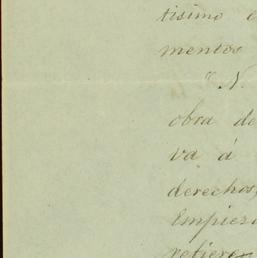 tisimo
mentos
N.
obra de
va á
derechos,
Empies
refieren